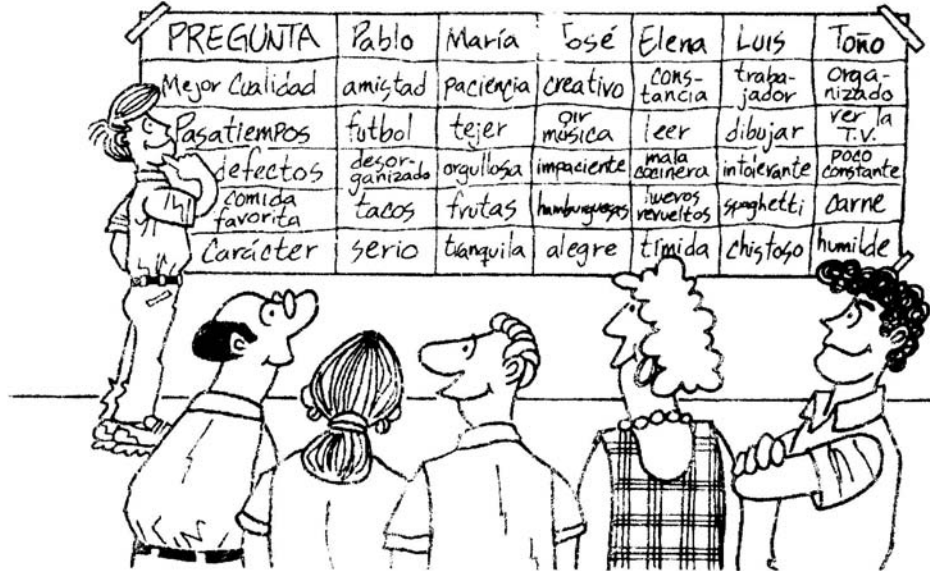 PREGUNTA Pablo María José Elena Luis Toño
Mejor Cualidad amistad paciencia creativo cons-tancia traba-jador orga-nizado
Pasatiempos futbol tejer oir música leer dibujar ver la T.V.
defectos desor-ganizado orgullosa impaciente mala cocinera intolerante poco constante
comida favorita tacos frutas hamburguesas huevos revueltos spaghetti carne
Carácter serio tranquila alegre tímida chistoso humilde